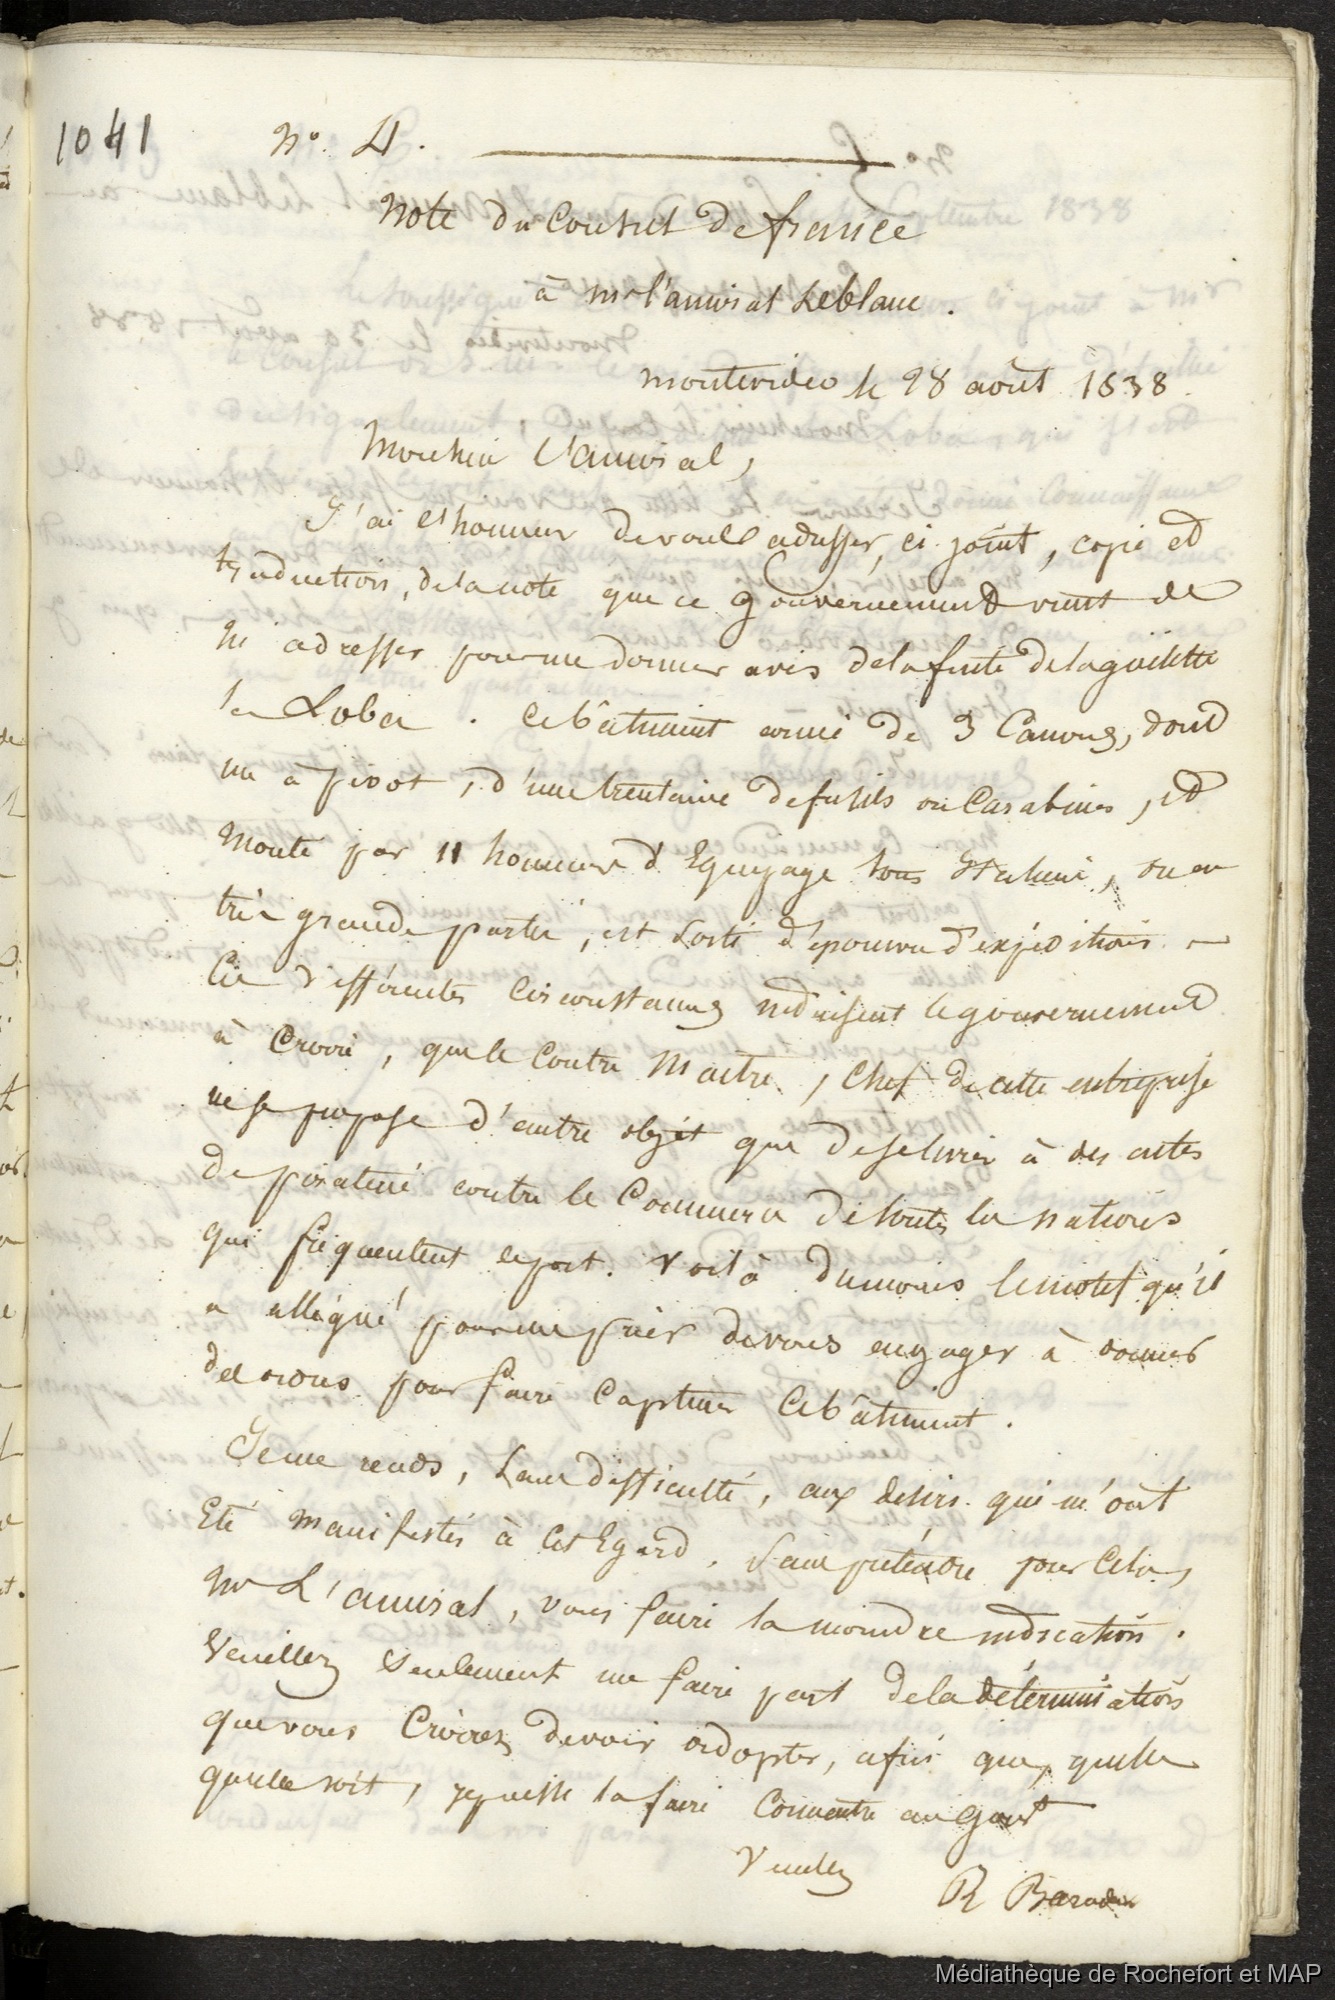 1041
N°. 4.
Note du Consul de france
à mr l'amiral Leblanc.
Montevideo le 28 août 1838.
Monsieur l'amiral,
J'ai l'honneur de vous adresser, ci joint, copie et
traduction, de la note que ce gouvernement vient de
m'adresser pour me donner avis de la fuite de la goëlette
la Loba. Ce bâtiment armé de 3 Canons, dont
un à pivot, d'une trentaine de fusils ou Carabines, et
monté par 11 hommes d'Equipage tous Italiens, ou en
très grande partie, est sorti dépourvu d'expéditions.
Ces différentes circonstances induisent le gouvernement
à croire, que le Contre Maitre, chef de cette entreprise
ne se propose d'autre objet que de se livrer à des actes
de piraterie contre le Commerce de toutes les nations
qui fréquentent ce port. Voilà du moins le motif qu'il
a allégué pour me prier de vous engager à donner
des ordres pour faire Capturer Ce bâtiment.
Je me rends, sans difficulté, aux desirs qui m'ont
Eté manifestés à cet Egard, sans prétendre pour Cela,
Mr L'amiral, vous faire la moindre indication.
Veuillez seulement me faire part de la détermination
que vous Croirez devoir adopter, afin que, quelle
qu'elle soit, je puisse la faire Connaitre au Gouvt
Veuillez
R Baradère
Médiathèque de Rochefort et MAP